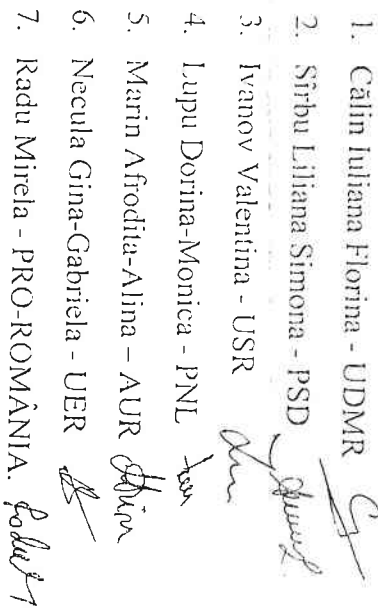 1. Călin Iuliana Florina - UDMR
2. Sîrbu Liliana Simona - PSD
3. Ivanov Valentina - USR
4. Lupu Dorina-Monica - PNL
5. Marin Afrodita-Alina – AUR
6. Necula Gina-Gabriela - UER
7. Radu Mirela - PRO-ROMÂNIA.